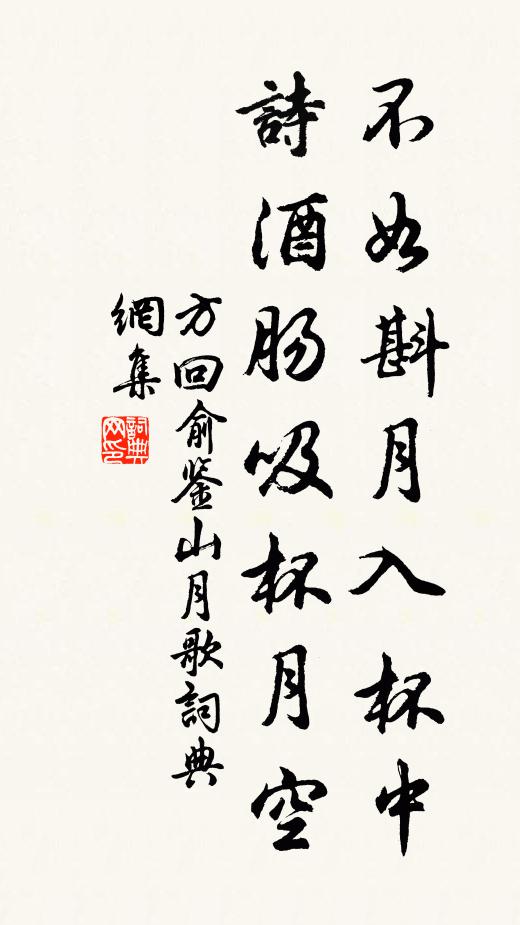 不如斟月入杯中
詩酒肠吸杯月空
方回俞鉴山月歌詞典
網集
詞典
网印